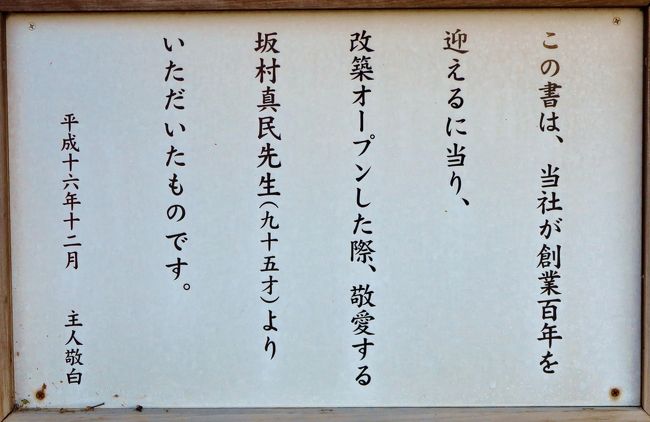 この書は、当社が創業百年を
迎えるに当り、
改築オープンした際、敬愛する
坂村真民先生(九十五才)より
いただいたものです。
平成十六年十二月 主人敬白